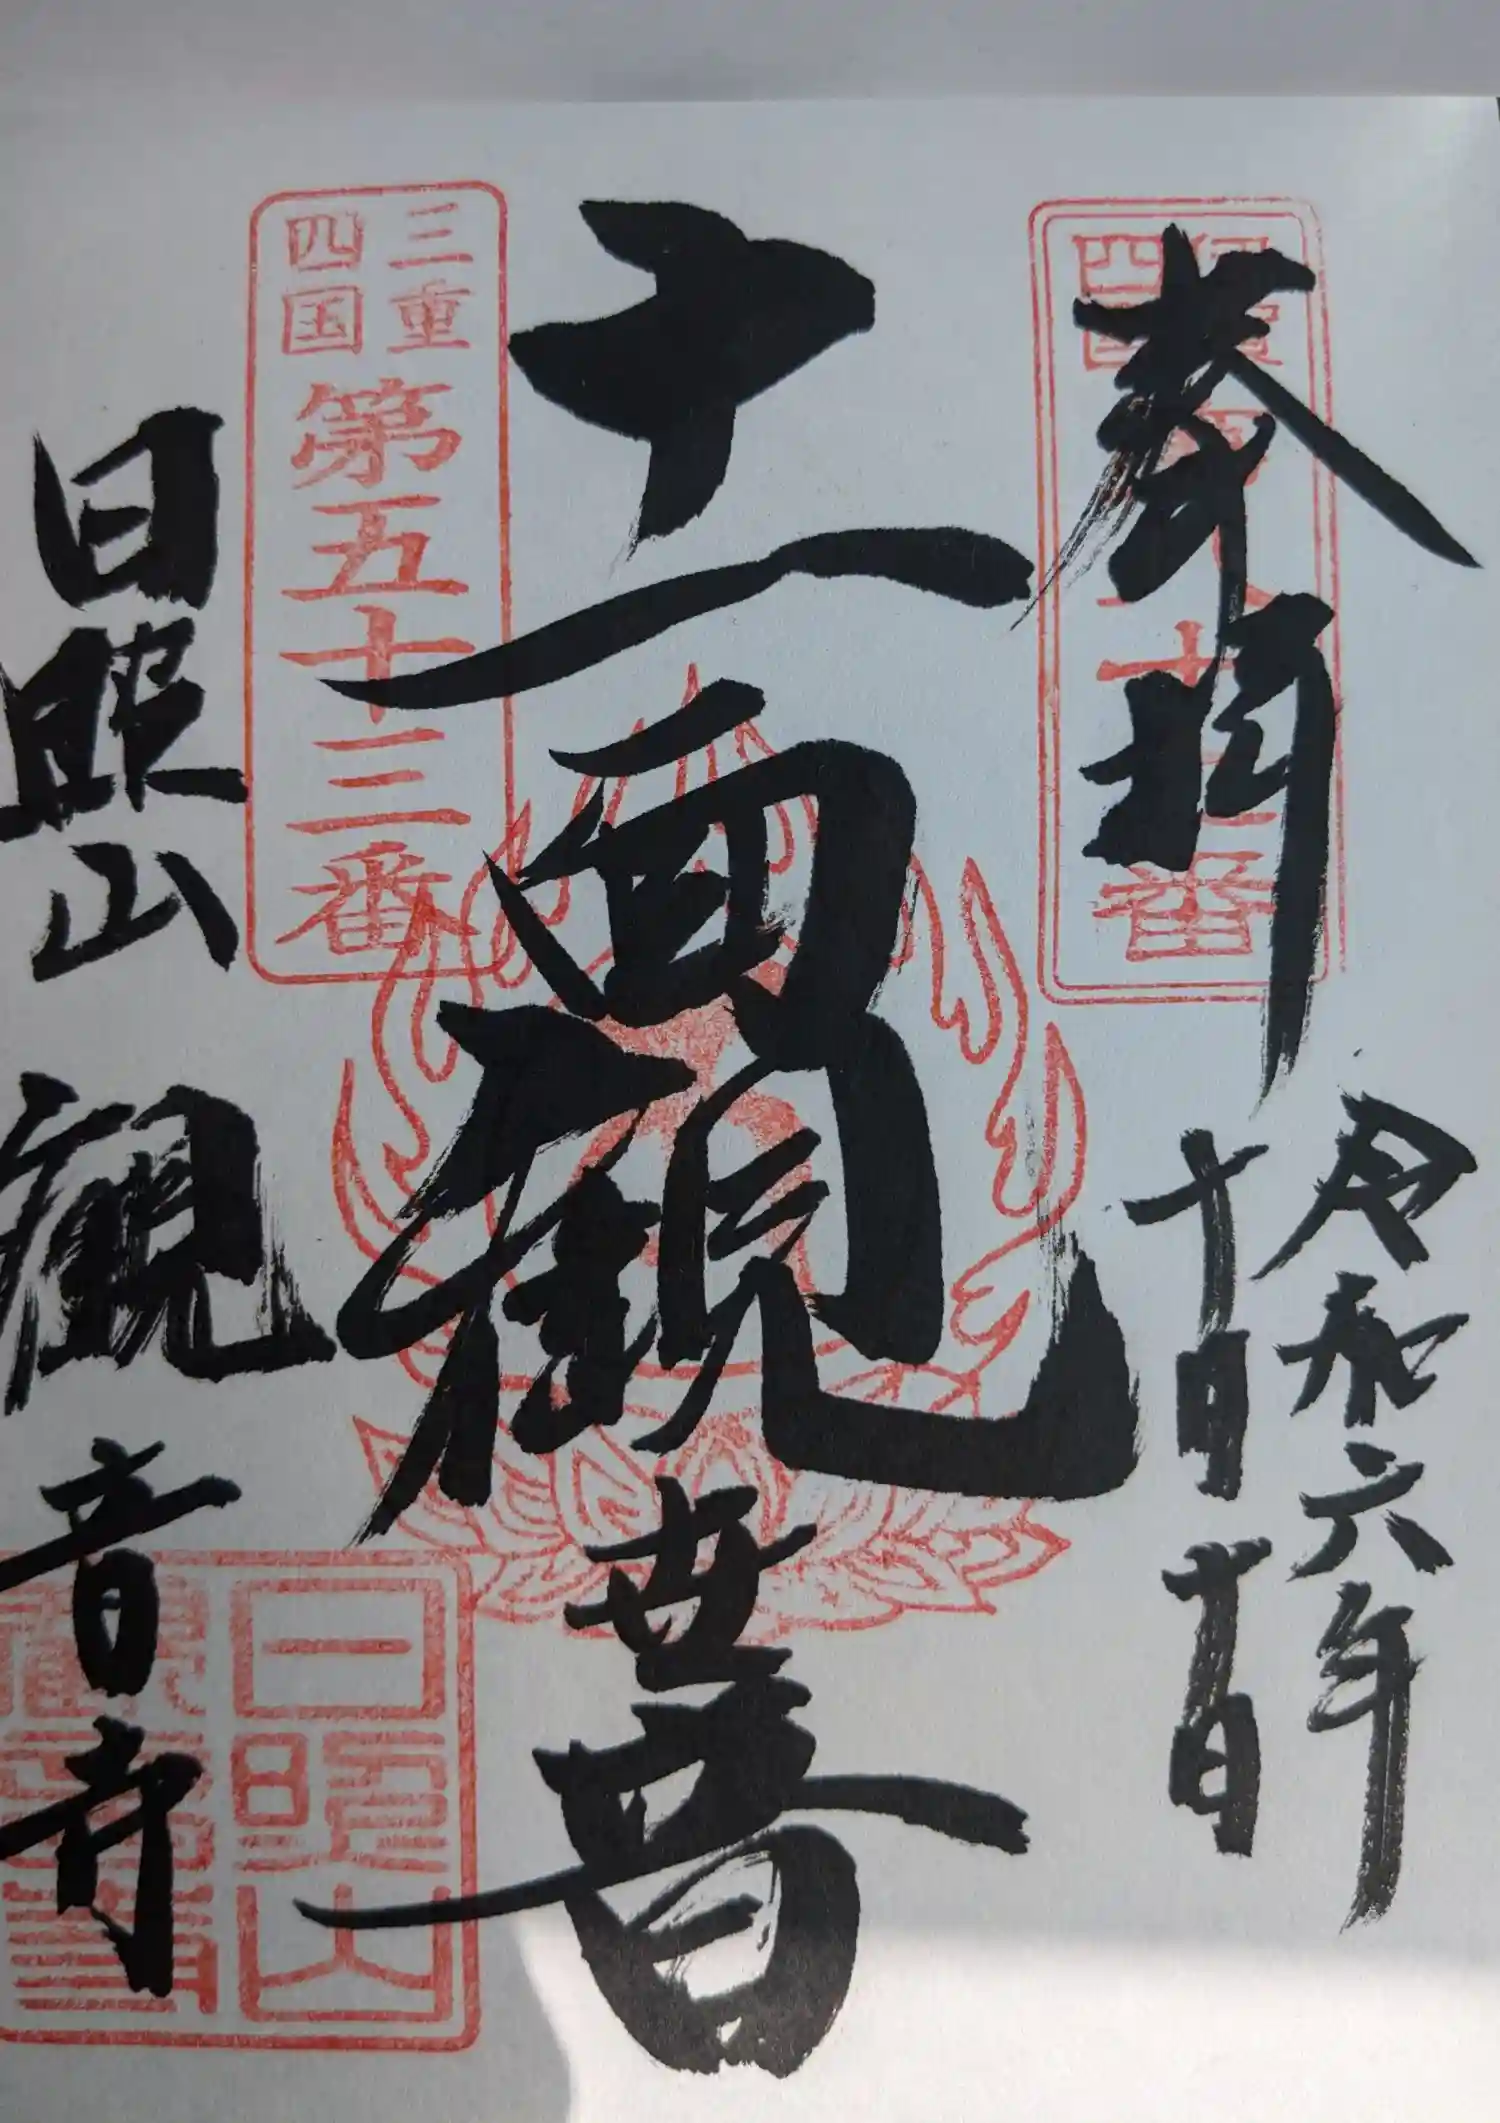 奉拝
令和六年
十月十日
十一面観世音
三重
四国
第五十三番
日照山 観音寺
日照山